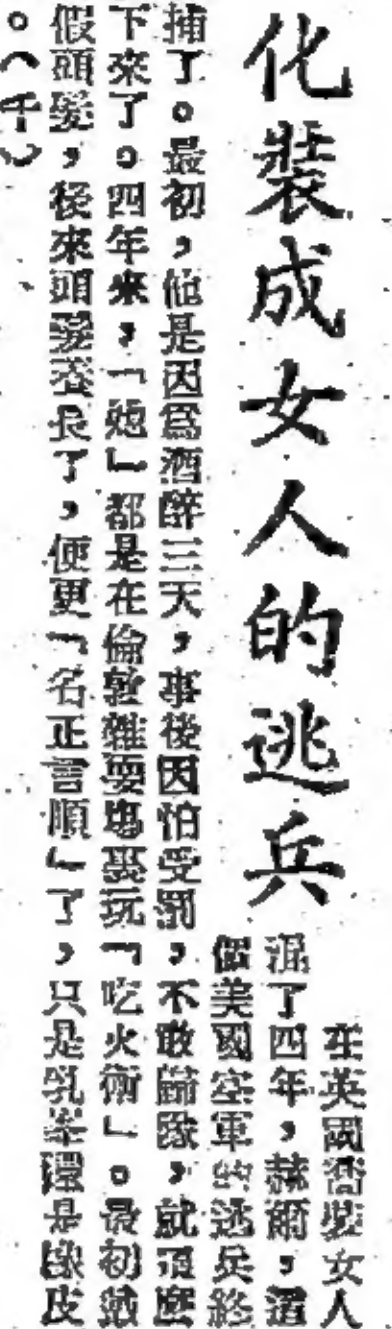 化裝成女人的逃兵
在英國喬裝女人
混了四年,赫爾,這
個美國空軍的逃兵終
捕了。最初,他是因爲酒醉三天,事後因怕受罰,不敢歸隊,就這麼
下來了。四年來,「她」都是在倫敦雜耍場裏玩「吃火術」。最初戴
假頭髮,後來頭髮養長了,便更「名正言順」了,只是乳峯還是橡皮
。(千)